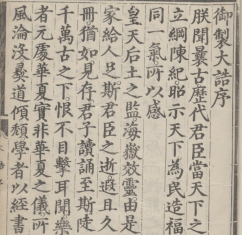 御製大誥序
朕聞曩古歷代君臣當天下之
立綱陳紀昭示天下為民造福
同一氣所以感
皇天后土之監海嶽效靈由是
家給人足斯君臣之遐且久
冊猶如見存君子讀誦至斯陡
千萬古之下恨不目擊耳聞樂
者元處華夏實非華夏之儀所
風淪沒彝道傾頹學者以經書